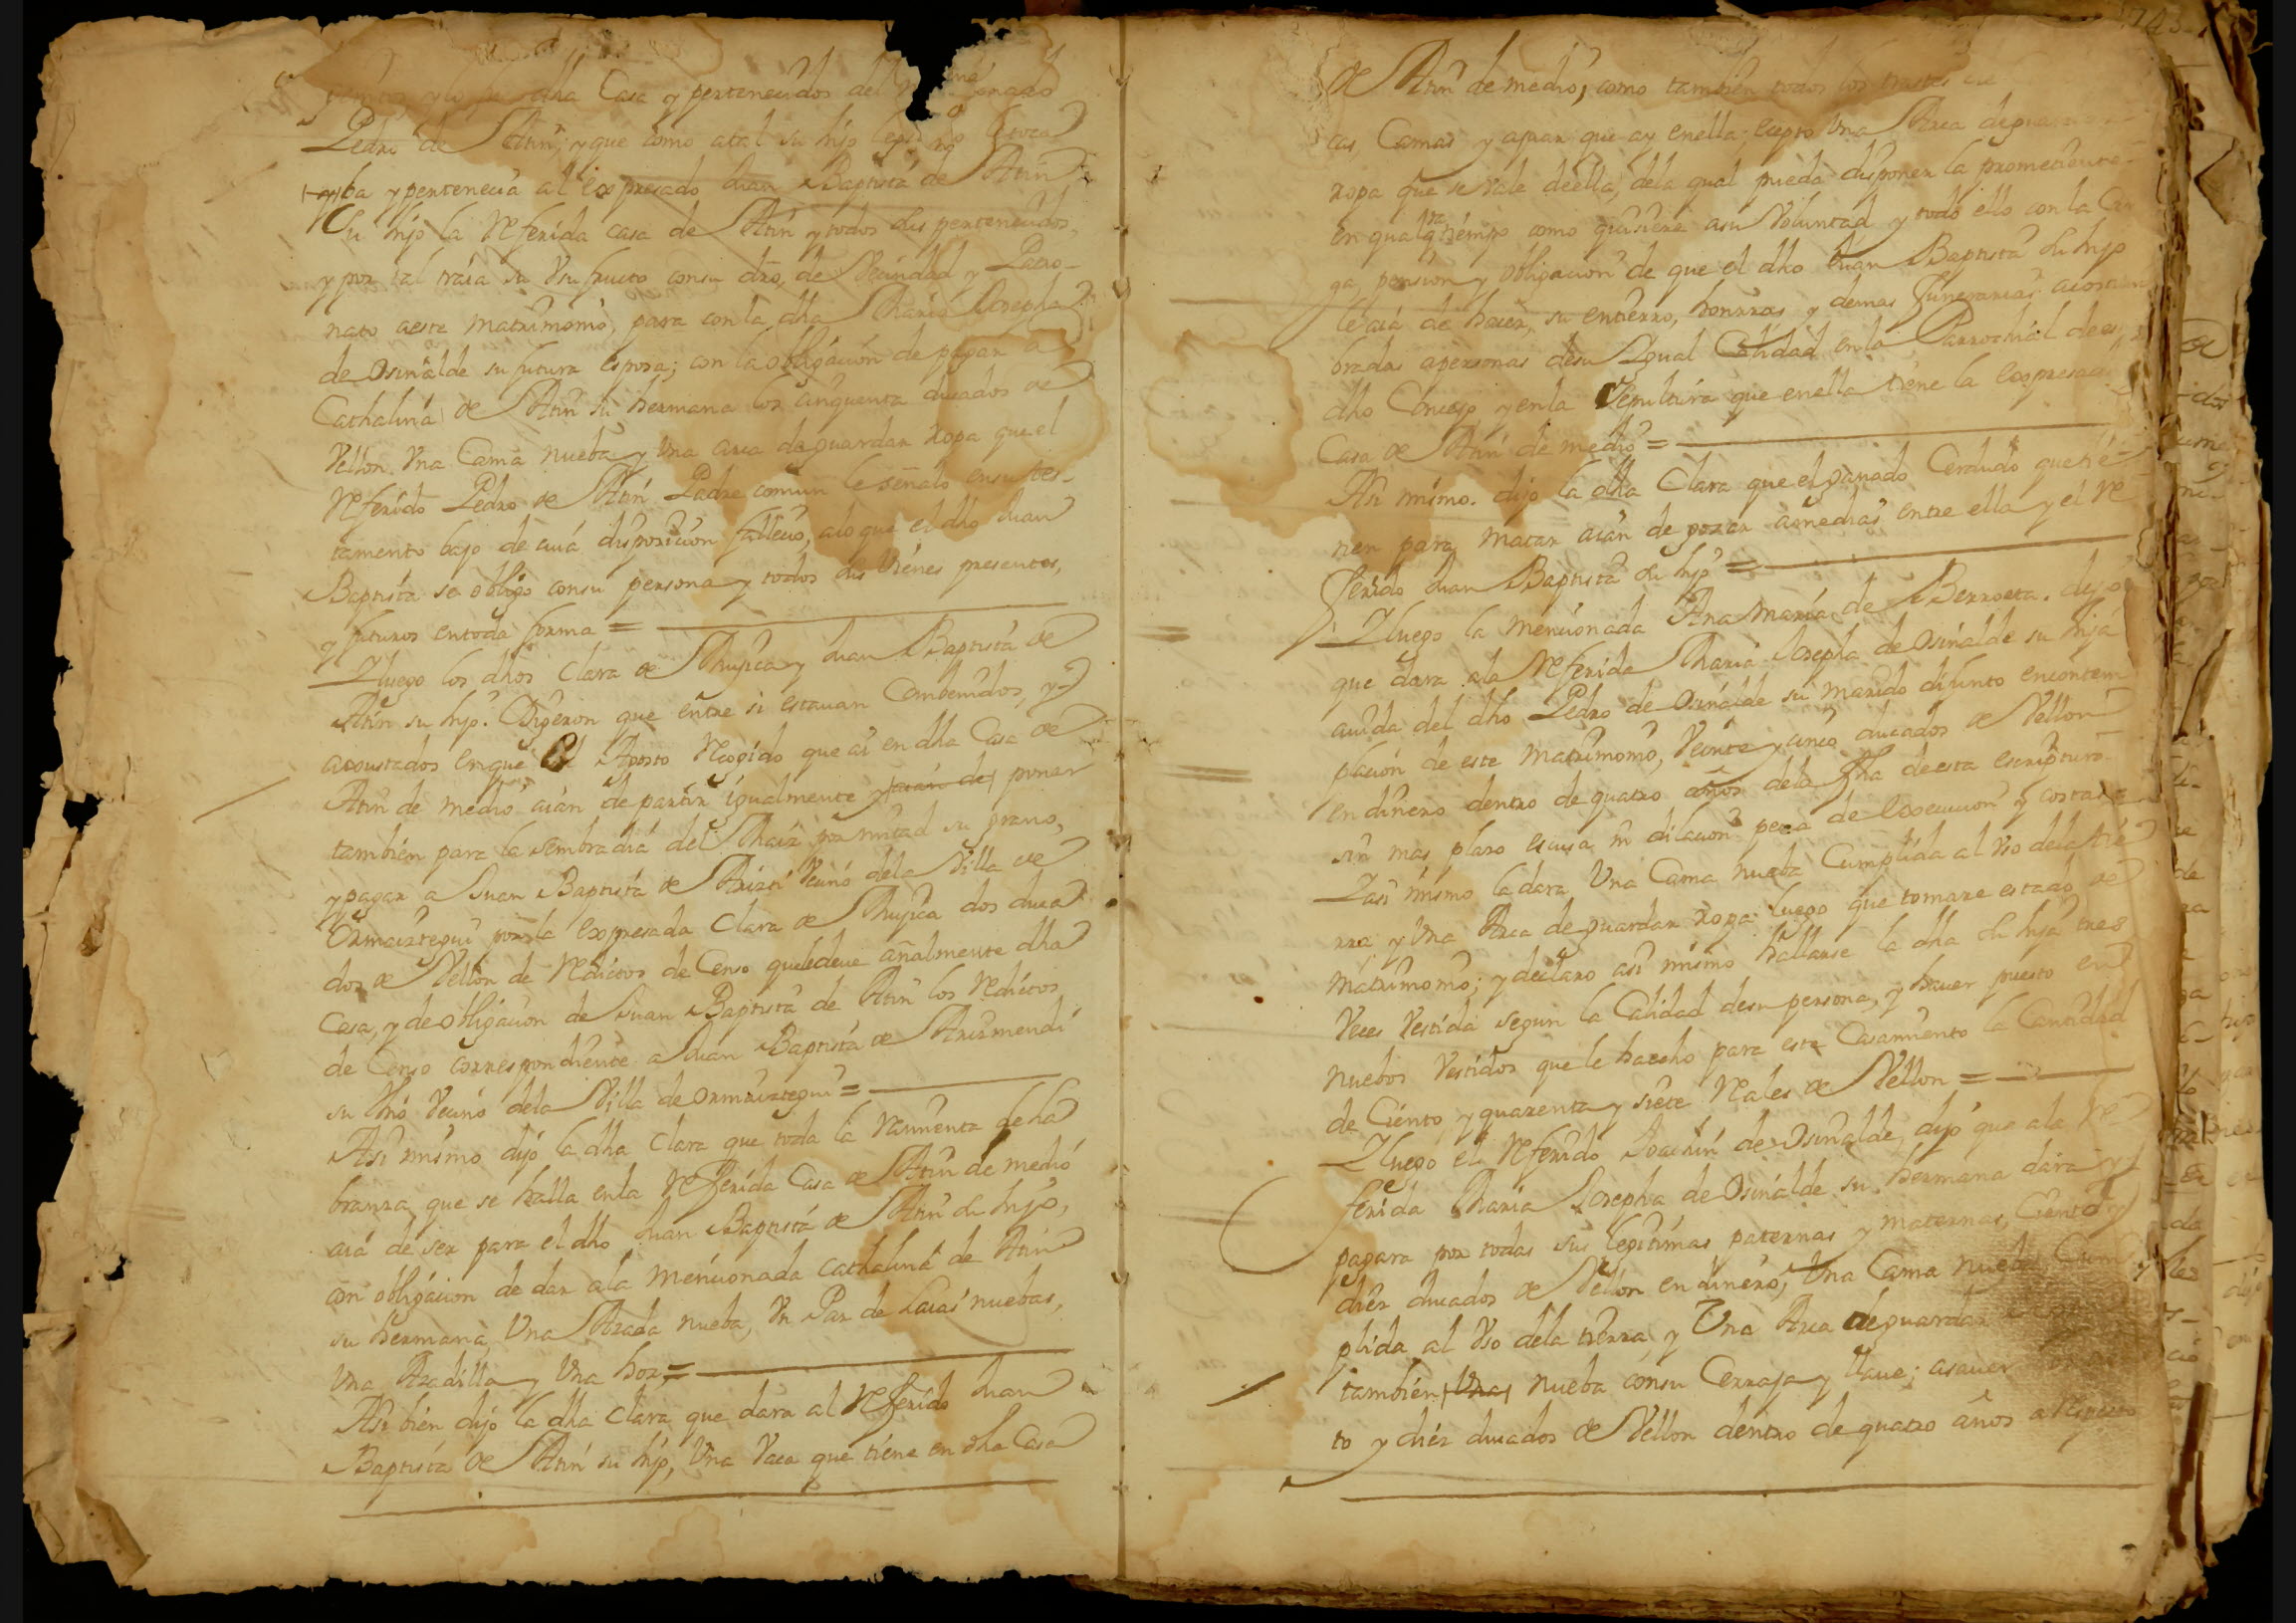 dha Casa y pertenecidos del
Pedro de Atin, y que como atal su hijo legi
ba y pertenecia al expresado Juan Baptista de Atin
Su hijo la Referida casa de Atin y todos sus pertenecidos,
y por tal traia su Vsufructo consu dro, de Vecindad y Patro-
nato aeste matrimonio, para con la dha Maria Josepha
de Osinalde su futura esposa; con la obligacion de pagar a
Cathalina de Atin su hermana los cinquenta ducados de
Vellon Vna Cama nueba y Vna arca de guardar Ropa que el
Referido Pedro de Atin Padre comun le señalo ensu tes-
tamento bajo de cuia disposicion fallecio, alo que el dho Juan
Baptista se obligo consu persona y todos sus Vienes presentes,
y futuros entoda forma =
Y luego los dhos Clara de Mujica y Juan Baptista de
Atin su hijo. Digeron que entre si estauan Combenidos, y
acoustados enque el Aposto Recogido que ai en dha Casa de
Atin de medio aian de partir igualmente y aian de poner
tambien para la sembradia del Maiz por mitad su prano,
y pagar a Juan Baptista de Arizti Vecino dela Villa de
Ormaiztegui por la expresada Clara de Mujica dos duca
dos de Vellon de Reditos de Censo que le deve añalmente dha
Casa, y de obligacion de Juan Baptista de Atin los Reditos
de Censo correspondiente a Juan Baptista de Arizmendi
su thio Vecino dela Villa de Ormaiztegui =
Asi mismo dijo la dha Clara que toda la Raimenta de la
branza que se halla enla Referida Casa de Atin de medio
aia de ser para el dho Juan Baptista de Atin su hijo,
con obligacion de dar ala mencionada Cathalina de Atin
su hermana, Vna Azada nueba, Vn Par de Laias nuebas,
Vna Azadilla y Vna hoz, =
Asi bien dijo la dha Clara que dara al Referido Juan
Baptista de Atin su hijo, Vna Vaca que tiene en dha Casa
de Atin de medio, como tambien todos los trastes de
cas, Camas y ajuar que ay enella; ecepto Vna Arca de
ropa que se vale deella, dela qual pueda disponer la prometiente
en qualqra tiempo como quisiere asu Voluntad y todo ello con la Car
ga, pension y obligacion de que el dho Juan Baptista su hijo
le aia de hacer, su entierro, honrras y demas funerarias acostum
bradas apersonas desu Igual Calidad en la Parrochial de es
dho Concejo y enla Sepultura que enella tiene la expresad
Casa de Atin de medio =
Asi mismo dijo la dha Clara que el ganado Cerdudo que tie-
nen para matar aian de pozar amedias entre ella y el Re
ferido Juan Baptista su hijo =
Y luego la mencionada Ana Maria de Berroeta. dijo
que dara ala Referida Maria Josepha de Osinalde su hija
auida del dho Pedro de Osinalde su marido difunto encontem
placion de este matrimonio, Veinte y cinco ducados de Vellon
en dinero dentro de quatro años dela fha deesta escriptura
sin mas plazo escusa ni dilacion pena de execucion y costas =
Y asi mismo la dara Vna Cama nueba Cumplida al Vso dela tie
rra, y Vna Arca de guardar ropa. luego que tomare estado de
matrimonio; y declaro asi mismo hallarse la dha su hija tres
Veces Vestida segun la Calidad desu persona, y hauer puesto en
nuebos Vestidos que le ha echo para este Casamiento la Cantidad
de Ciento y quarenta y siete Reales de Vellon =
Y luego el Referido Joachin de Osinalde, dijo que ala Re
ferida Maria Josepha de Osinalde su hermana dara y
pagara por todas sus legitimas paternas y maternas, Ciento y
diez ducados de Vellon en dinero, Vna Cama nueba, Cum
plida al Vso dela tierra, y Vna Arca deguardar
tambien Vna nueba consu Cerraja y llaue; asauer
to y diez ducados de Vellon dentro de quatro años a Respecto